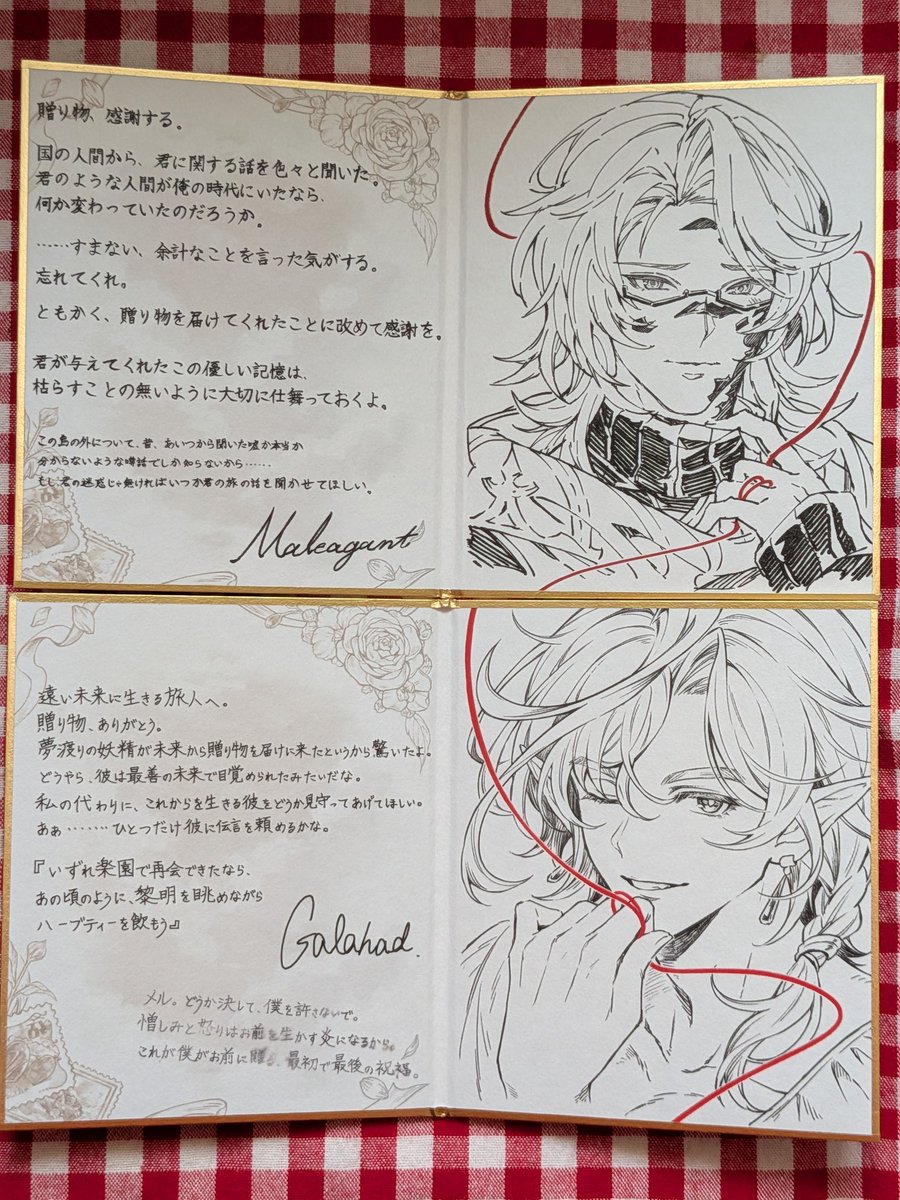 贈り物、感謝する。
国の人間から、君に関する話を色々と聞いた。
君のような人間が俺の時代にいたなら、
何か変わっていたのだろうか。
……すまない、余計なことを言った気がする。
忘れてくれ。
ともかく、贈り物を届けてくれたことに改めて感謝を。
君が与えてくれたこの優しい記憶は、
枯らすことの無いように大切に仕舞っておくよ。
この島の外について、昔、あいつから聞いた嘘か本当か
分からないような噂話でしか知らないから……
もし君の迷惑じゃ無ければいつか君の旅の話を聞かせてほしい。
Maleagant
遠い未来に生きる旅人へ。
贈り物、ありがとう。
夢渡りの妖精が未来から贈り物を届けに来たというから驚いたよ。
どうやら、彼は最善の未来で目覚められたみたいだな。
私の代わりに、これからを生きる彼をどうか見守ってあげてほしい。
あぁ………ひとつだけ彼に伝言を頼めるかな。
『いずれ楽園で再会できたなら、
あの頃のように、黎明を眺めながら
ハーブティーを飲もう』
Galahad.
メル。どうか決して、僕を許さないで。
憎しみと怒りはお前を生かす炎になるから。
これが僕がお前に贈る、最初で最後の祝福。